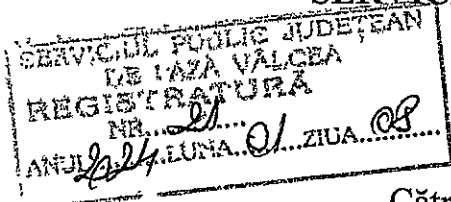 SERVICIUL PUBLIC JUDEȚEAN
DE PAZA VÂLCEA
REGISTRATURĂ
NR...21....
ANUL 2024 LUNA..01..ZIUA..08.......
Cătr